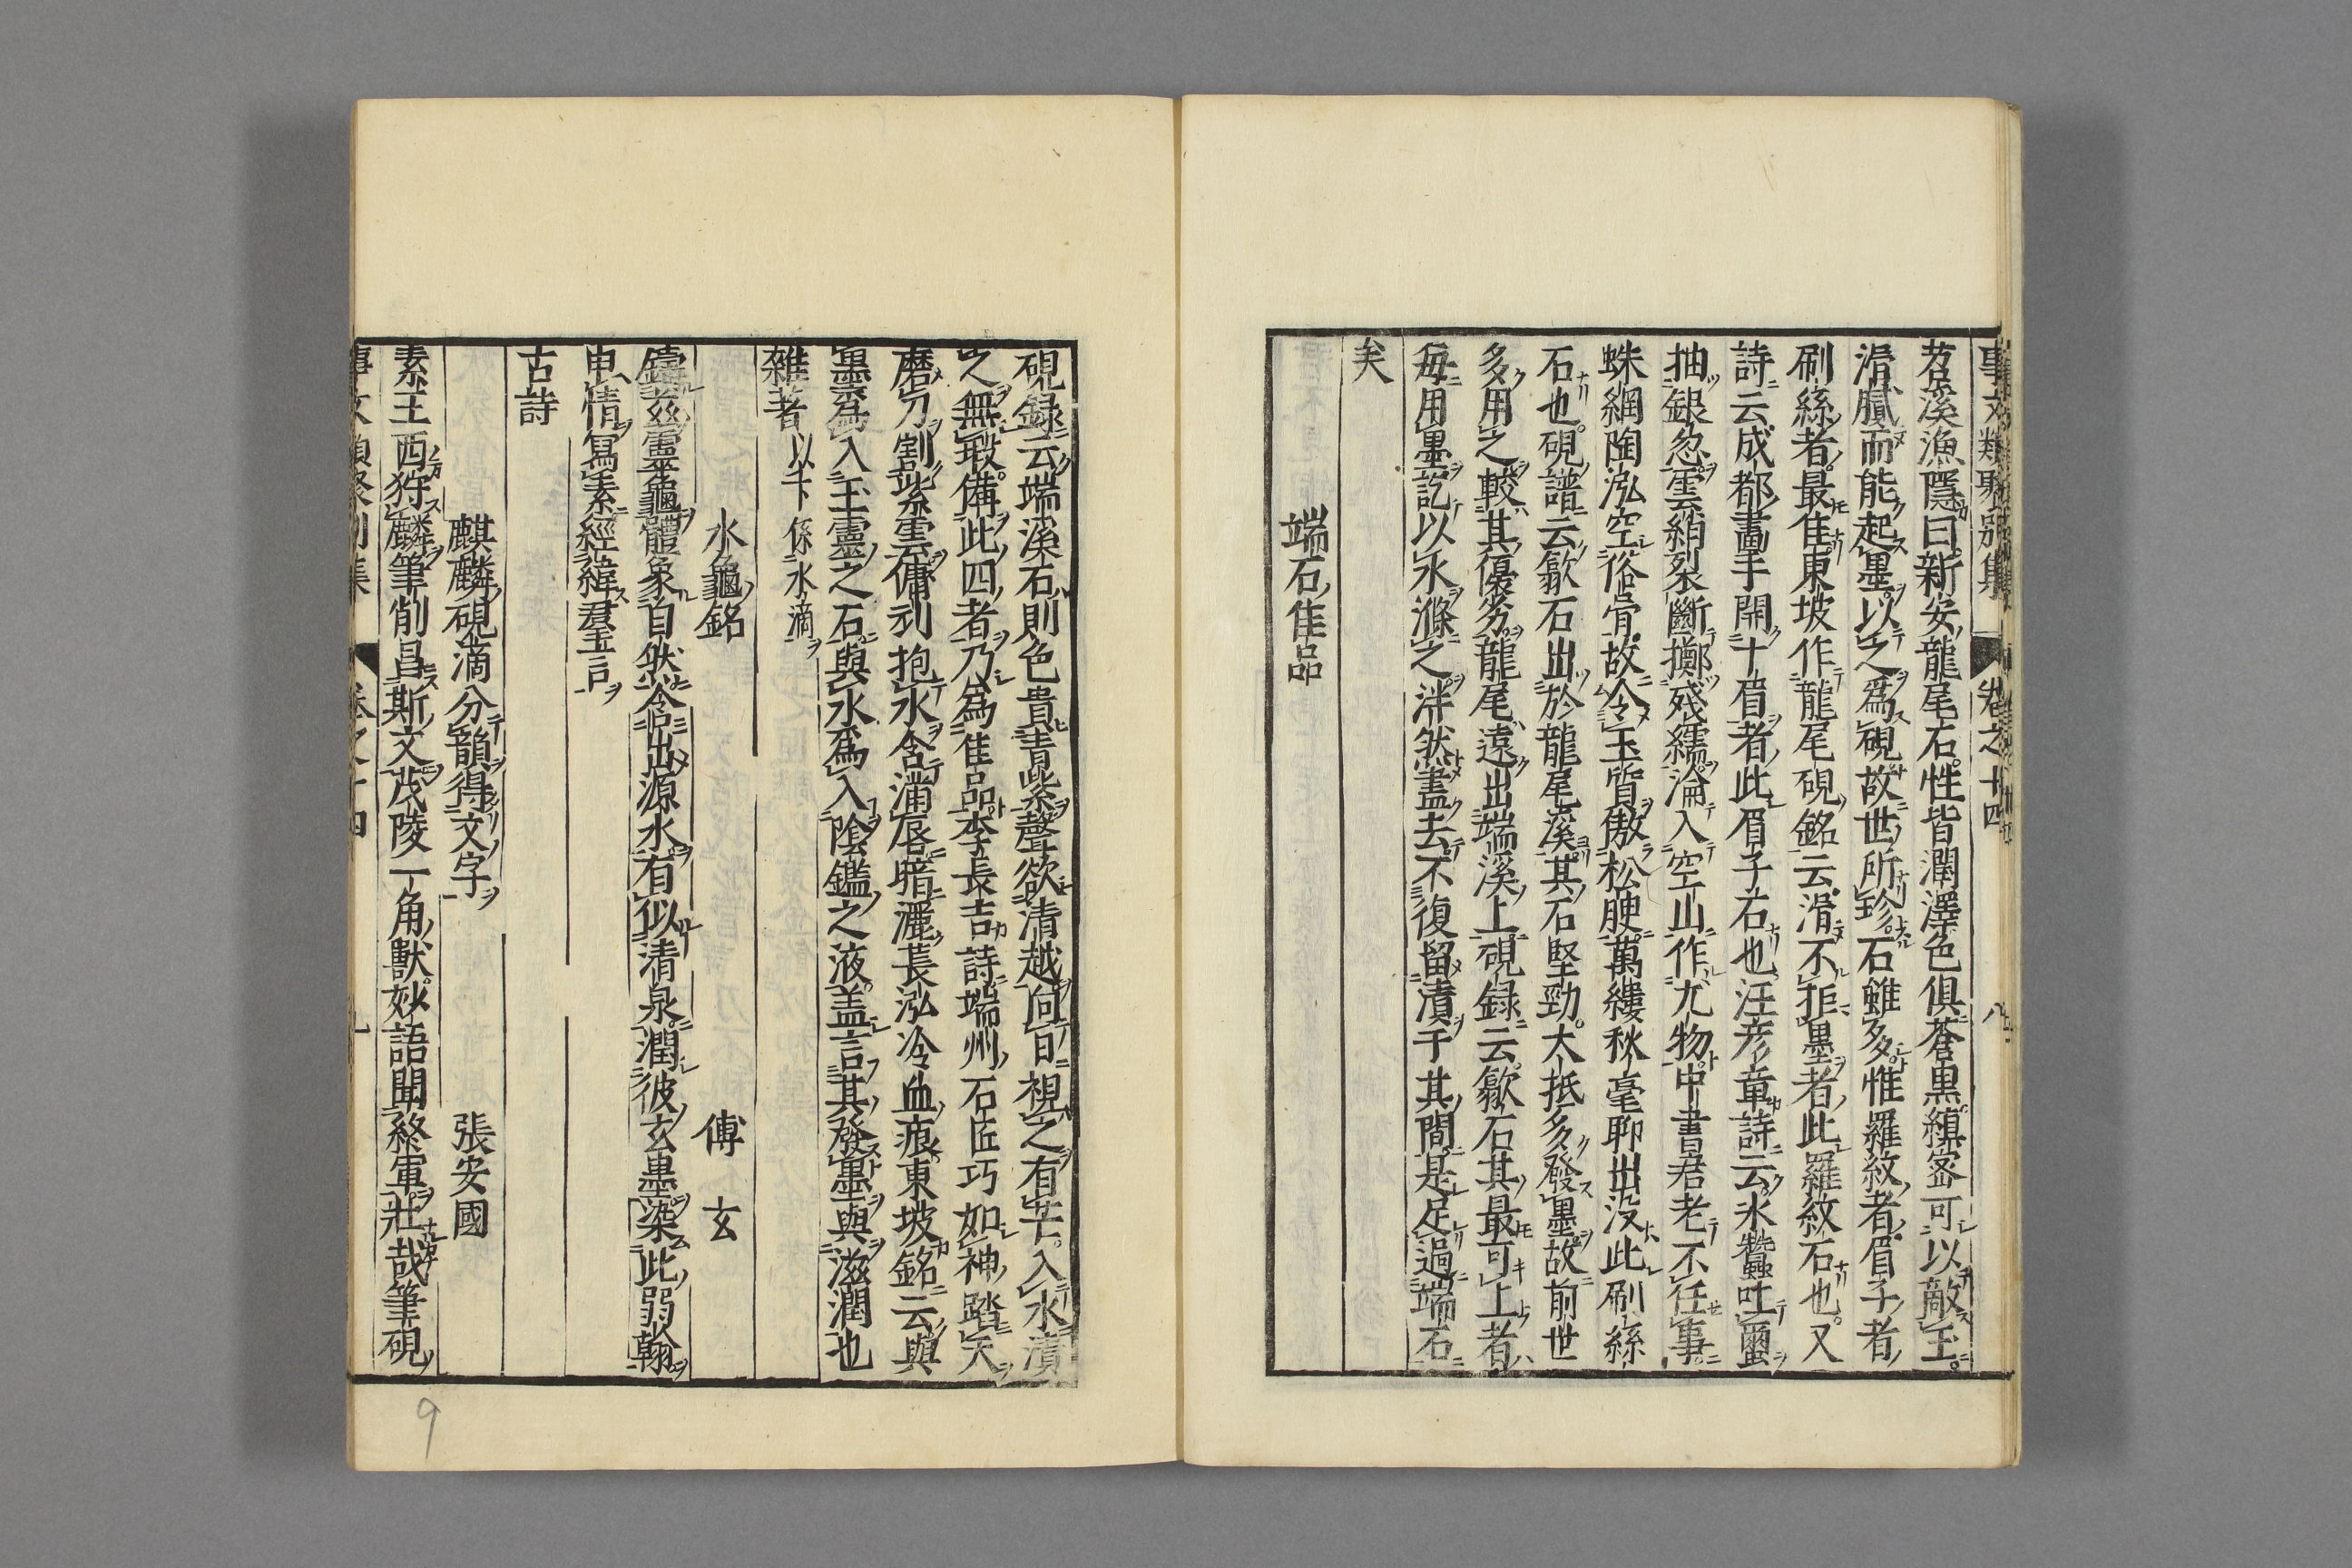 事文類聚別集 卷之十四 八
苕溪漁隱曰新安龍尾石性皆潤澤色俱蒼黒縝宻可以敵玉
滑膩而能起墨以之爲硯故世所珍石雖多惟羅紋者眉子者
刷絲者最佳東坡作龍尾硯銘云滑不拒墨者此羅紋石也又
詩云成都畵手開十眉者此眉子石也汪彦章詩云氷蠶吐蠒
抽銀忽雲綃裂斷擲殘繻淪入空山作尤物中書君老不任事
蛛網陶泓空俗骨故令玉質傲松腴萬縷秋毫聊出没此刷絲
石也硯譜云歙石出於龍尾溪其石堅勁大抵多發墨故前世
多用之較其優劣龍尾遠出端溪上硯録云歙石其最可上者
毎用墨訖以水滌之泮然盡去不復留漬于其間是足過端石
矣
端石佳品
硯録云端溪石則色貴青紫聲欲清越向日視之有芒入水漬
之無瑕備此四者乃爲佳品李長吉詩端州石匠巧如神踏天
磨刀割紫雲傭刓抱水含滿唇暗灑萇泓冷血痕東坡銘云與
墨爲入玉靈之石與水爲入陰鑑之液盖言其發墨與滋潤也
雜著 以下係水滴
水龜銘 傅玄
鑄茲靈龜體象自然含出源水有似清泉潤彼玄墨染此弱翰
申情冩素經緯羣言
古詩
麒麟硯滴分韻得文字 張安國
素王西狩麟筆削昌斯文茂陵一角獸妙語聞終軍壯哉筆硯
事文類聚別集 卷之十四 九
9